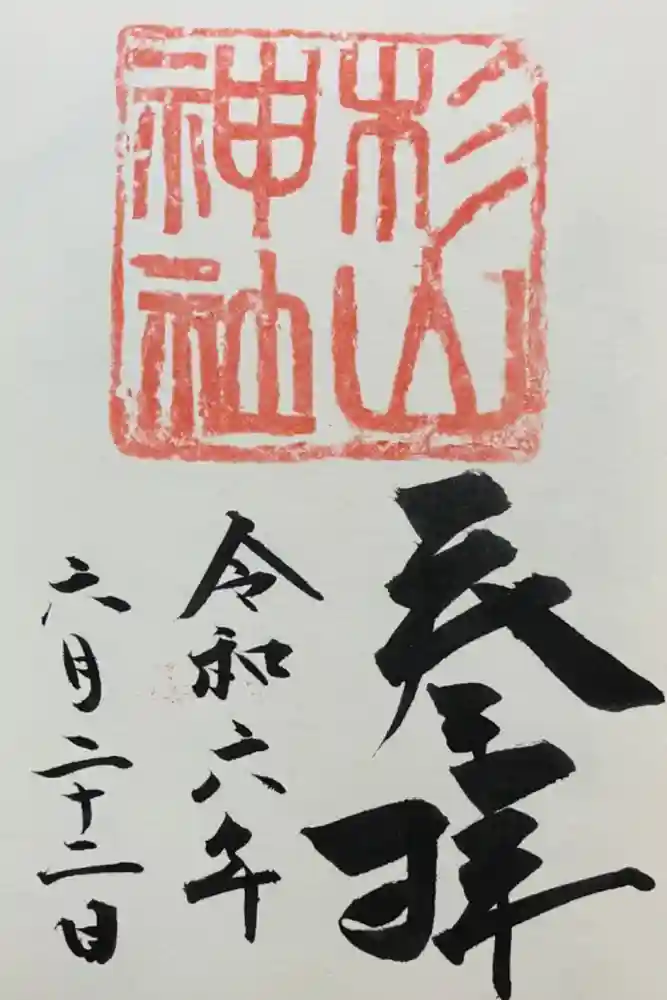 杉山
神社
参拝
令和六年
六月二十二日